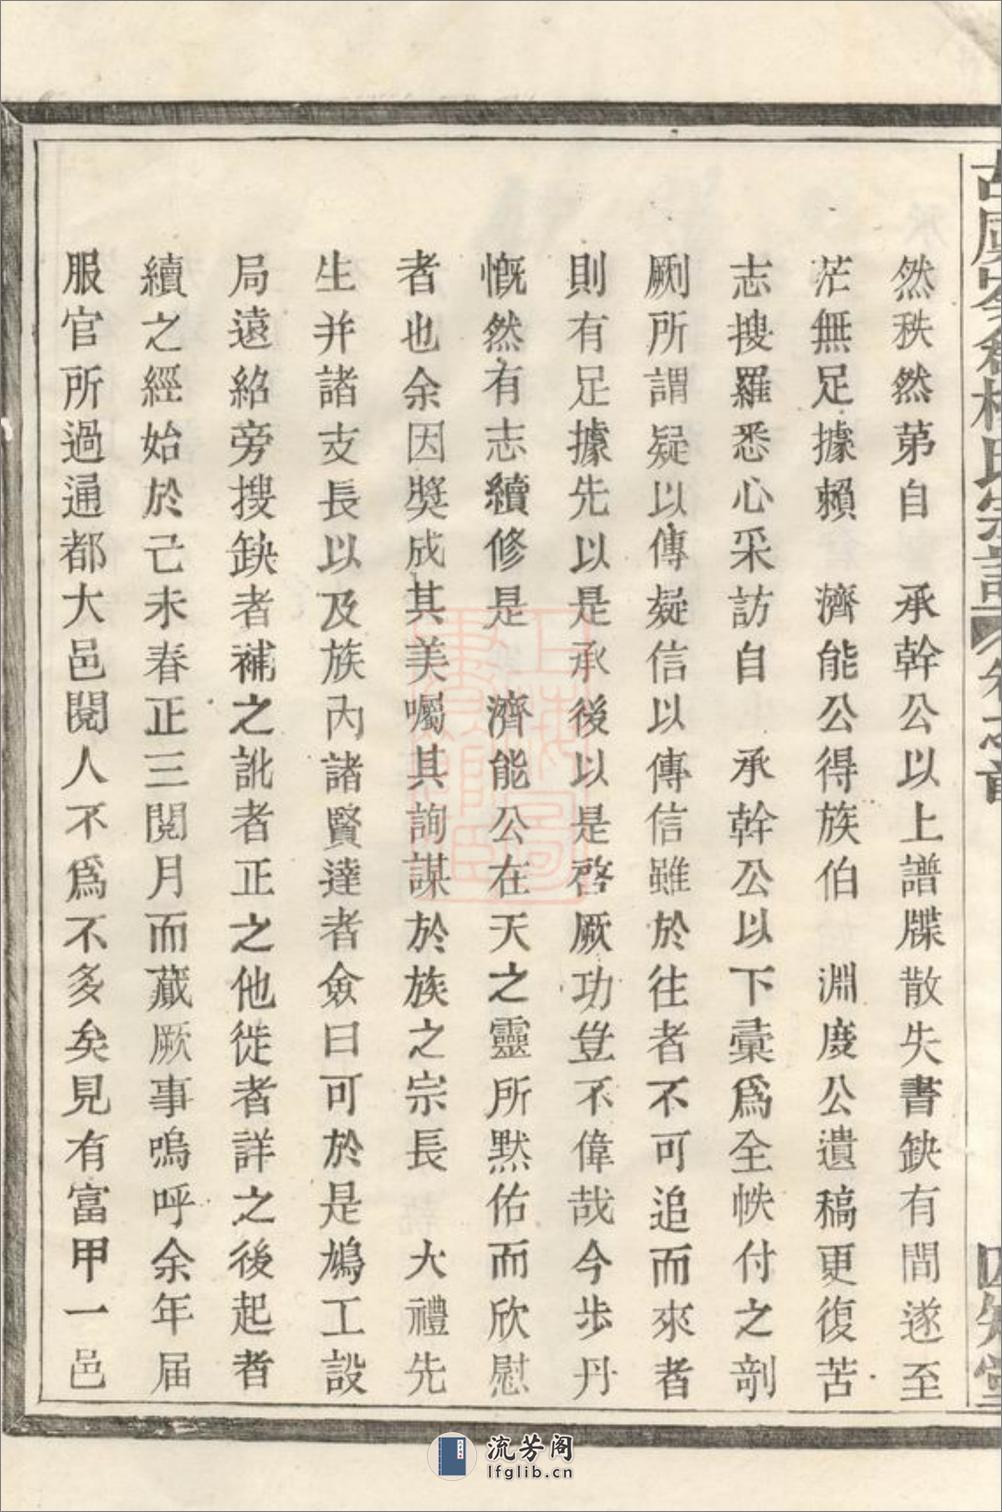 然秩然苐自　承幹公以上譜牒散失書缺有間遂至
茫無足據賴　濟能公得族伯　淵度公遺稿更復苦
志搜羅悉心采訪自　承幹公以下彙爲全帙付之剞
劂所謂疑以傳疑信以傳信雖於往者不可追而來者
則有足據先以是承後以是啓厥功豈不偉哉今步丹
慨然有志續修是　濟能公在天之靈所默佑而欣慰
者也余因奬成其美囑其詢謀於族之宗長　大禮先
生并諸支長以及族內諸賢達者僉曰可於是鳩工設
局遠紹旁搜缺者補之訛者正之他徙者詳之後起者
續之經始於己未春正三閱月而蕆厥事嗚呼余年屆
服官所過通都大邑閱人不爲不多矣見有富甲一邑
流芳阁
lfglib.cn